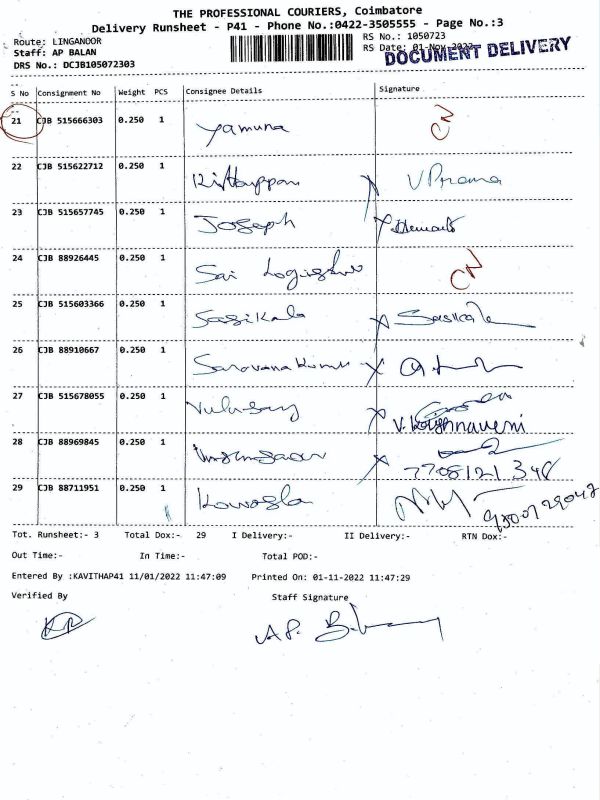 THE PROFESSIONAL COURIERS, Coimbatore
Delivery Runsheet - P41 - Phone No.:0422-3505555 - Page No.:3
Route: LINGANOOR
RS No.: 1050723
Staff: AP BALAN
RS Date: 01-Nov-2022
DOCUMENT DELIVERY
DRS No.: DCJB105072303
S No Consignment No Weight PCS Consignee Details Signature
21 CJB 515666303 0.250 1 Yamuna CN
22 CJB 515622712 0.250 1 V Prema
23 CJB 515657745 0.250 1 Joseph
24 CJB 88926445 0.250 1 Sai CN
25 CJB 515603366 0.250 1 Sasikala Sasikala
26 CJB 88910667 0.250 1 Saravana Kumar
27 CJB 515678055 0.250 1 V. Krishnaveni
28 CJB 88969845 0.250 1 7708121348
29 CJB 88711951 0.250 1
Tot. Runsheet:- 3 Total Dox:- 29 I Delivery:- II Delivery:- RTN Dox:-
Out Time:- In Time:- Total POD:-
Entered By :KAVITHAP41 11/01/2022 11:47:09 Printed On: 01-11-2022 11:47:29
Verified By Staff Signature
A.P.